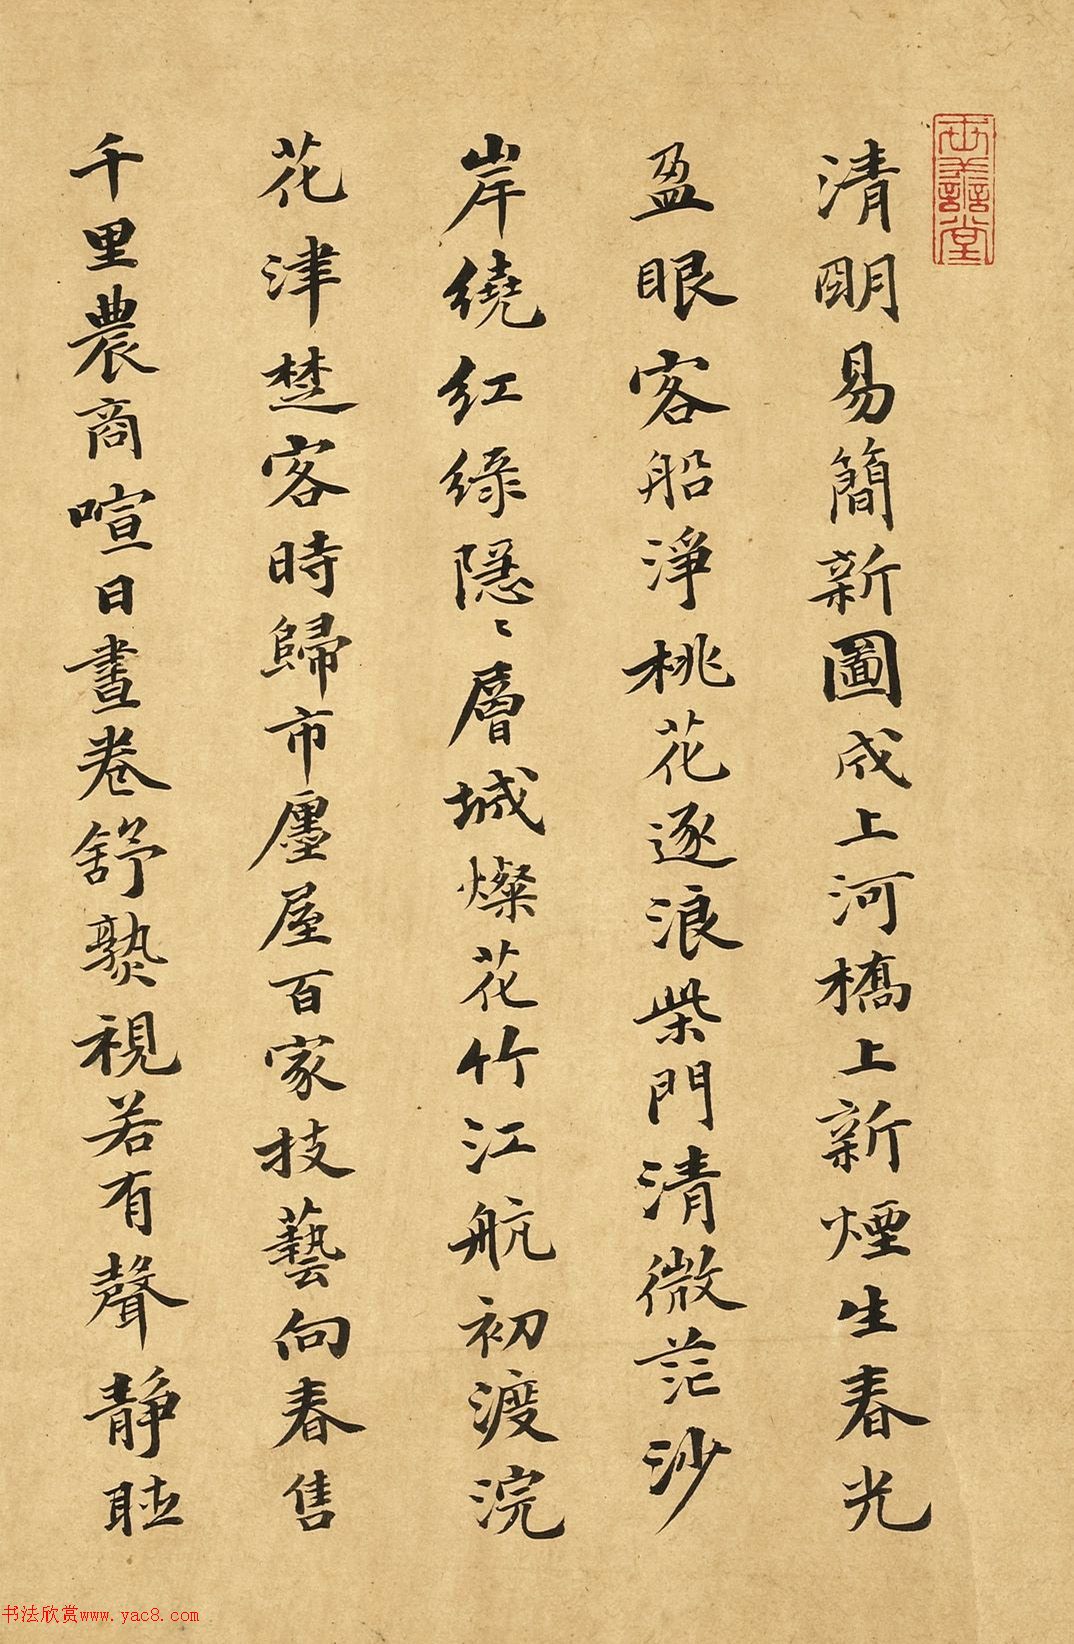 清明易簡新圖成上河橋上新煙生春光
盈眼客船淨桃花逐浪柴門清微茫沙
岸繞紅綠隱〻層城燦花竹江航初渡浣
花津楚客時歸市廛屋百家技藝向春售
千里農商喧日晝卷舒熟視若有聲靜聒
书法欣赏www.yac8.com